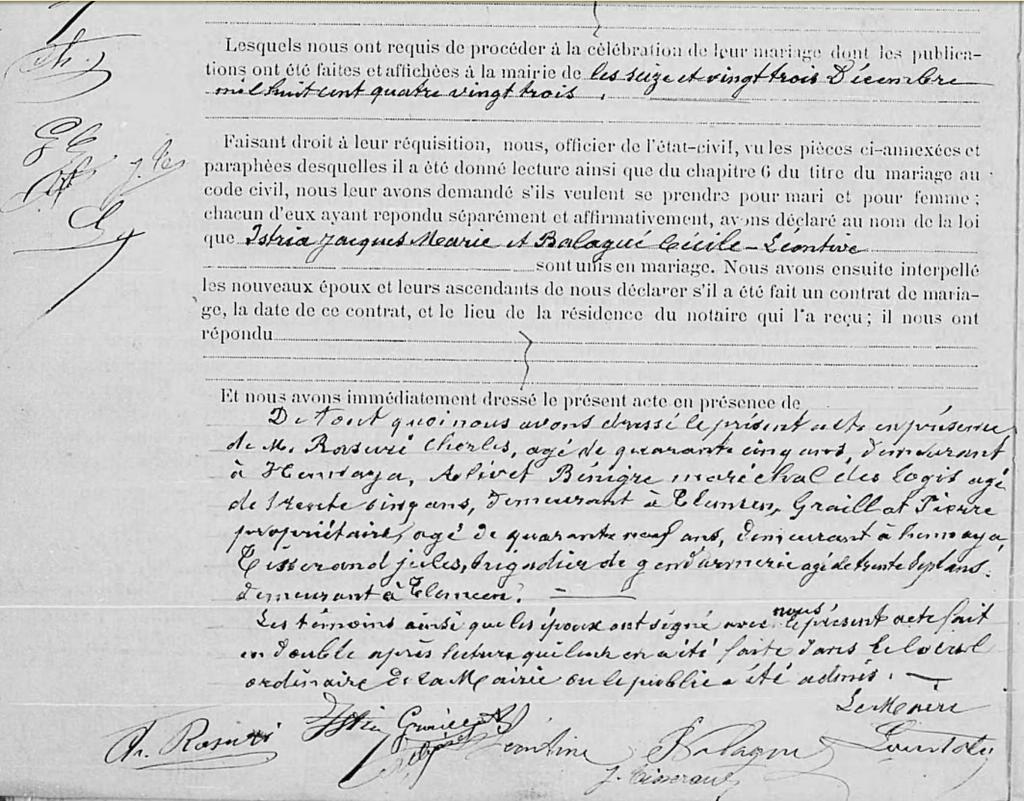 Lesquels nous ont requis de procéder à la célébration de leur mariage dont les publica-
tions ont été faites et affichées à la mairie de les seize et vingt trois Décembre
mil huit cent quatre vingt trois.
Faisant droit à leur réquisition, nous, officier de l'état-civil, vu les pièces ci-annexées et
paraphées desquelles il a été donné lecture ainsi que du chapitre 6 du titre du mariage au
code civil, nous leur avons demandé s'ils veulent se prendre pour mari et pour femme ;
chacun d'eux ayant repondu séparément et affirmativement, avons déclaré au nom de la loi
que Istria Jacques Marie et Balagué Cécile-Léontine
sont unis en mariage. Nous avons ensuite interpellé
les nouveaux époux et leurs ascendants de nous déclarer s'il a été fait un contrat de maria-
ge, la date de ce contrat, et le lieu de la résidence du notaire qui l'a reçu ; il nous ont
répondu
Et nous avons immédiatement dressé le présent acte en présence de
De tout quoi nous avons dressé le présent acte en présence
de M. Charles, agé de quarante cinq ans, demeurant
à Hennaya, Bénigne maréchal des logis agé
de trente cinq ans, demeurant à Tlemcen, Graillat Pierre
propriétaire, agé de quarante neuf ans, demeurant à hennaya,
Tisserand jules, brigadier de gendarmerie agé de trente sept ans.
demeurant à Tlemcen.
Les témoins ainsi que les époux ont signé avec nous le présent acte fait
en double après lecture qui leur en a été faite dans le local
ordinaire de la Mairie ou le public a été admis.
Le Maire
Istria Graillat
Ch. Léontine Balagué
J. Tisserand